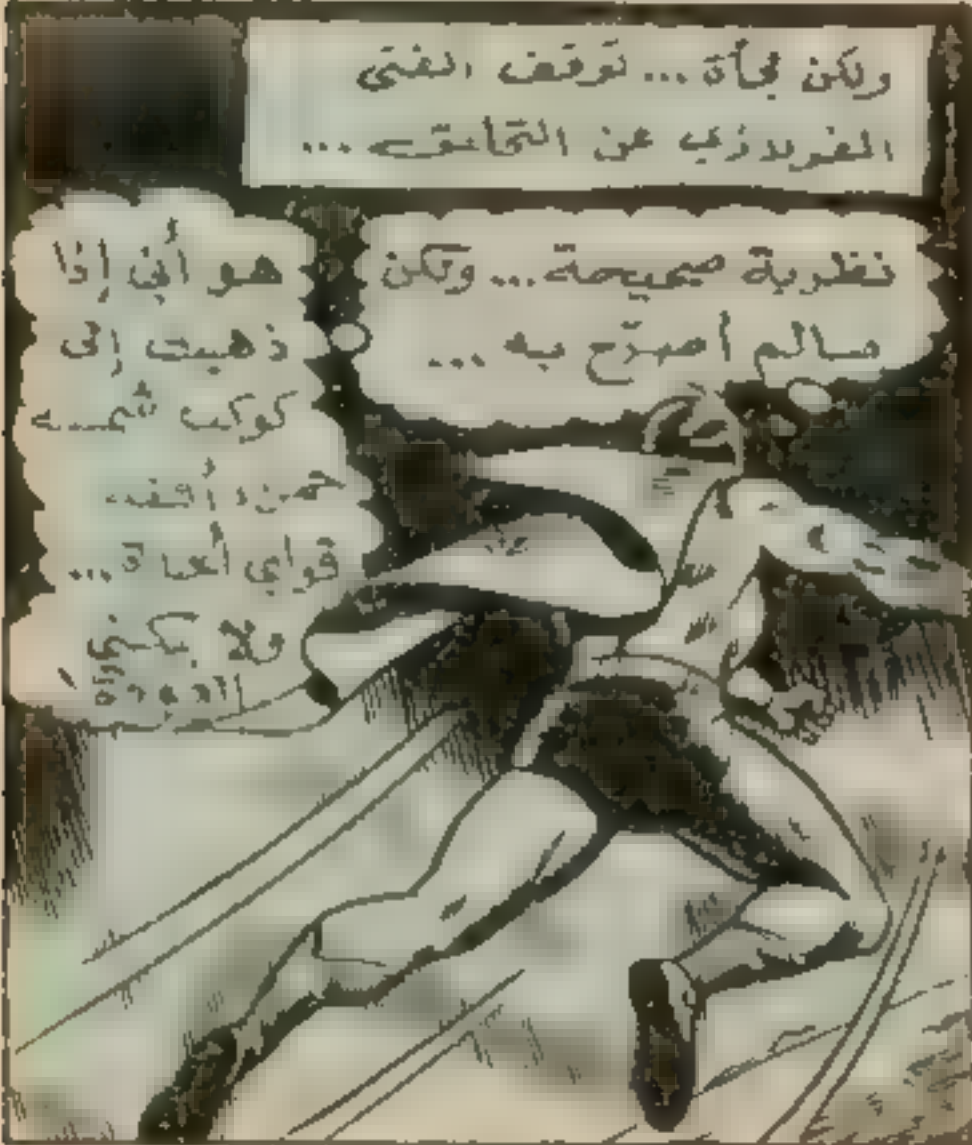 ولكن فجأة... توقف الفتى
الفريدزي عن التحليق...
نظرية صحيحة... ولكن
مالم أصرّح به...
هو أني إذا
ذهبت إلى
كوكب شمسه
حمراء أفقد
قواي
ولا يمكنني
العودة